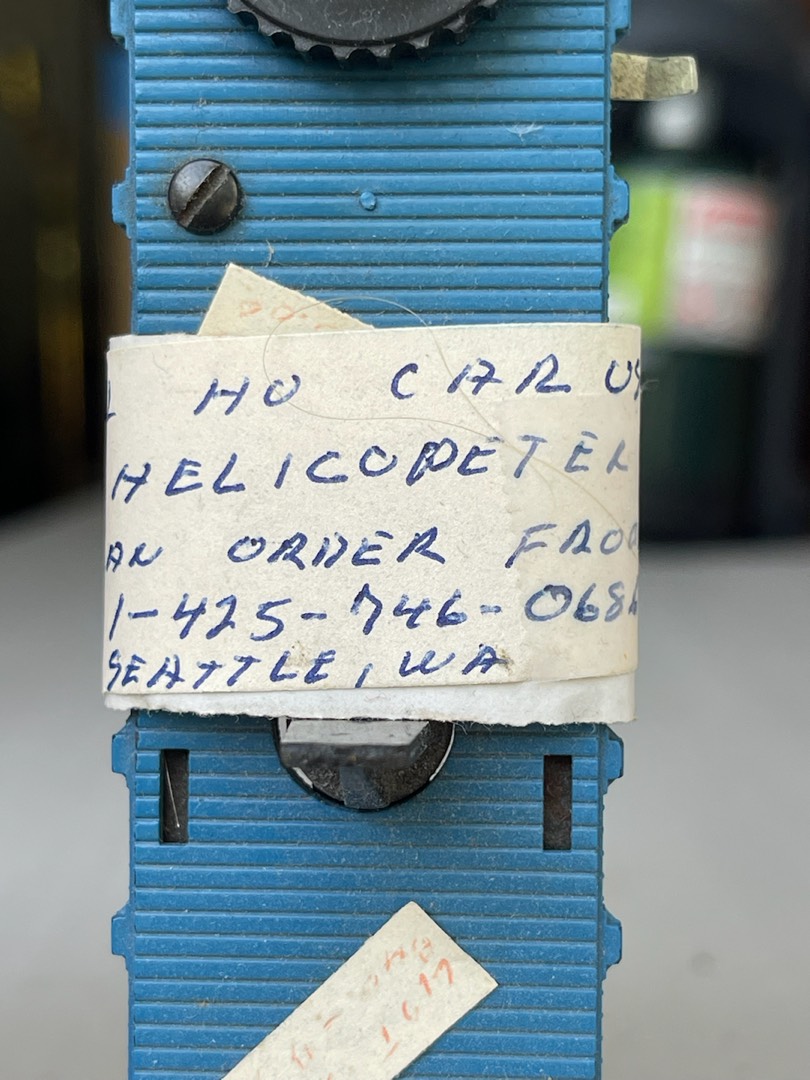 HO CAR
HELICOPETER
AN ORDER FROM
1-425-746-068
SEATTLE, WA